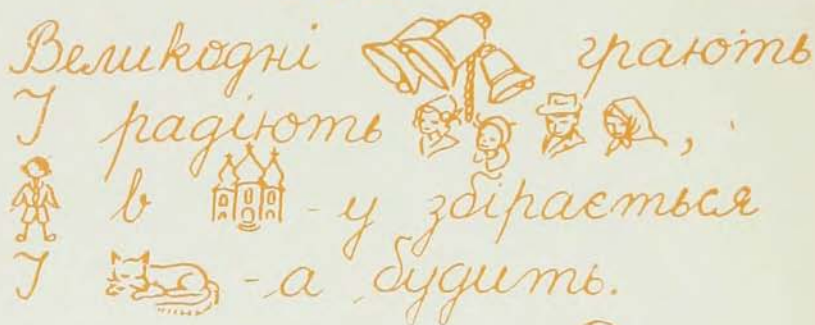 Великодні грають
І радіють ,
в -у збірається
І -а будить.